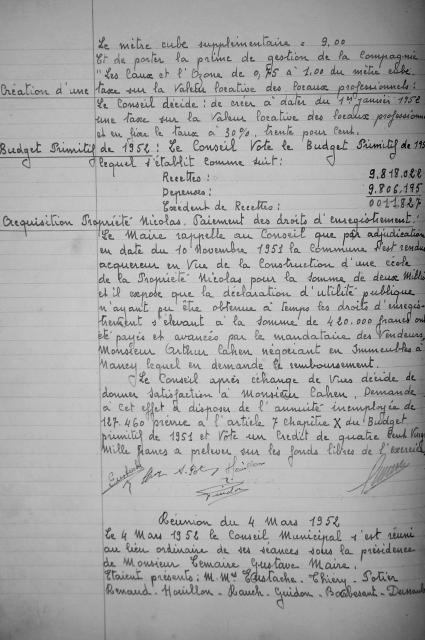 Le mètre cube supplémentaire = 9,00
Et de porter la prime de gestion de la Compagnie
"Les Eaux et l'Ozone de 0,75 à 1.00 du mètre cube.
Création d'une taxe sur la Valeur locative des locaux professionnels:
Le Conseil décide: de créer à dater du 1er janvier 1952
une taxe sur la Valeur locative des locaux professionn
et en fixe le taux à 30%, trente pour cent.
Budget Primitif de 1952: Le Conseil Vote le Budget Primitif de 195
lequel s'établit comme suit:
Recettes: 9.818.022
Depenses: 9.806.195
Excédent de Recettes: 0011.827
Acquisition Propriété Nicolas. Paiement des droits d'enregistrement.
Le Maire rappelle au Conseil que par adjudication
en date du 10 Novembre 1951 la Commune s'est rendue
acquereur en Vue de la Construction d'une école
de la Propriété Nicolas pour la somme de deux Milli
et il expose que la déclaration d'utilité publique
n'ayant pu être obtenue à temps les droits d'enregis-
trement s'élevant à la somme de 420.000 francs ont
été payés et avancés par le mandataire des Vendeurs,
Monsieur Arthur Cahen négociant en Immeubles à
Nancy lequel en demande le remboursement.
Le Conseil après échange de Vues décide de
donner satisfaction à Monsieur Cahen, Demande
à cet effet à disposer de l'annuité inemployée de
127.460 prévue à l'article 7 Chapitre X du Budget
primitif de 1951 et Vote un Crédit de quatre Cent Vingt
Mille francs à prélever sur les fonds libres de l'exercice
Houillon
Guidon
Réunion du 4 Mars 1952
Le 4 Mars 1952 le Conseil Municipal s'est réuni
au lieu ordinaire de ses séances sous la présidence
de Monsieur Lemaire Gustave Maire.
Etaient présents: M.Mrs Eustache - Thiery - Potier
Renaud - Houillon - Rauch - Guidon - Barbesant -